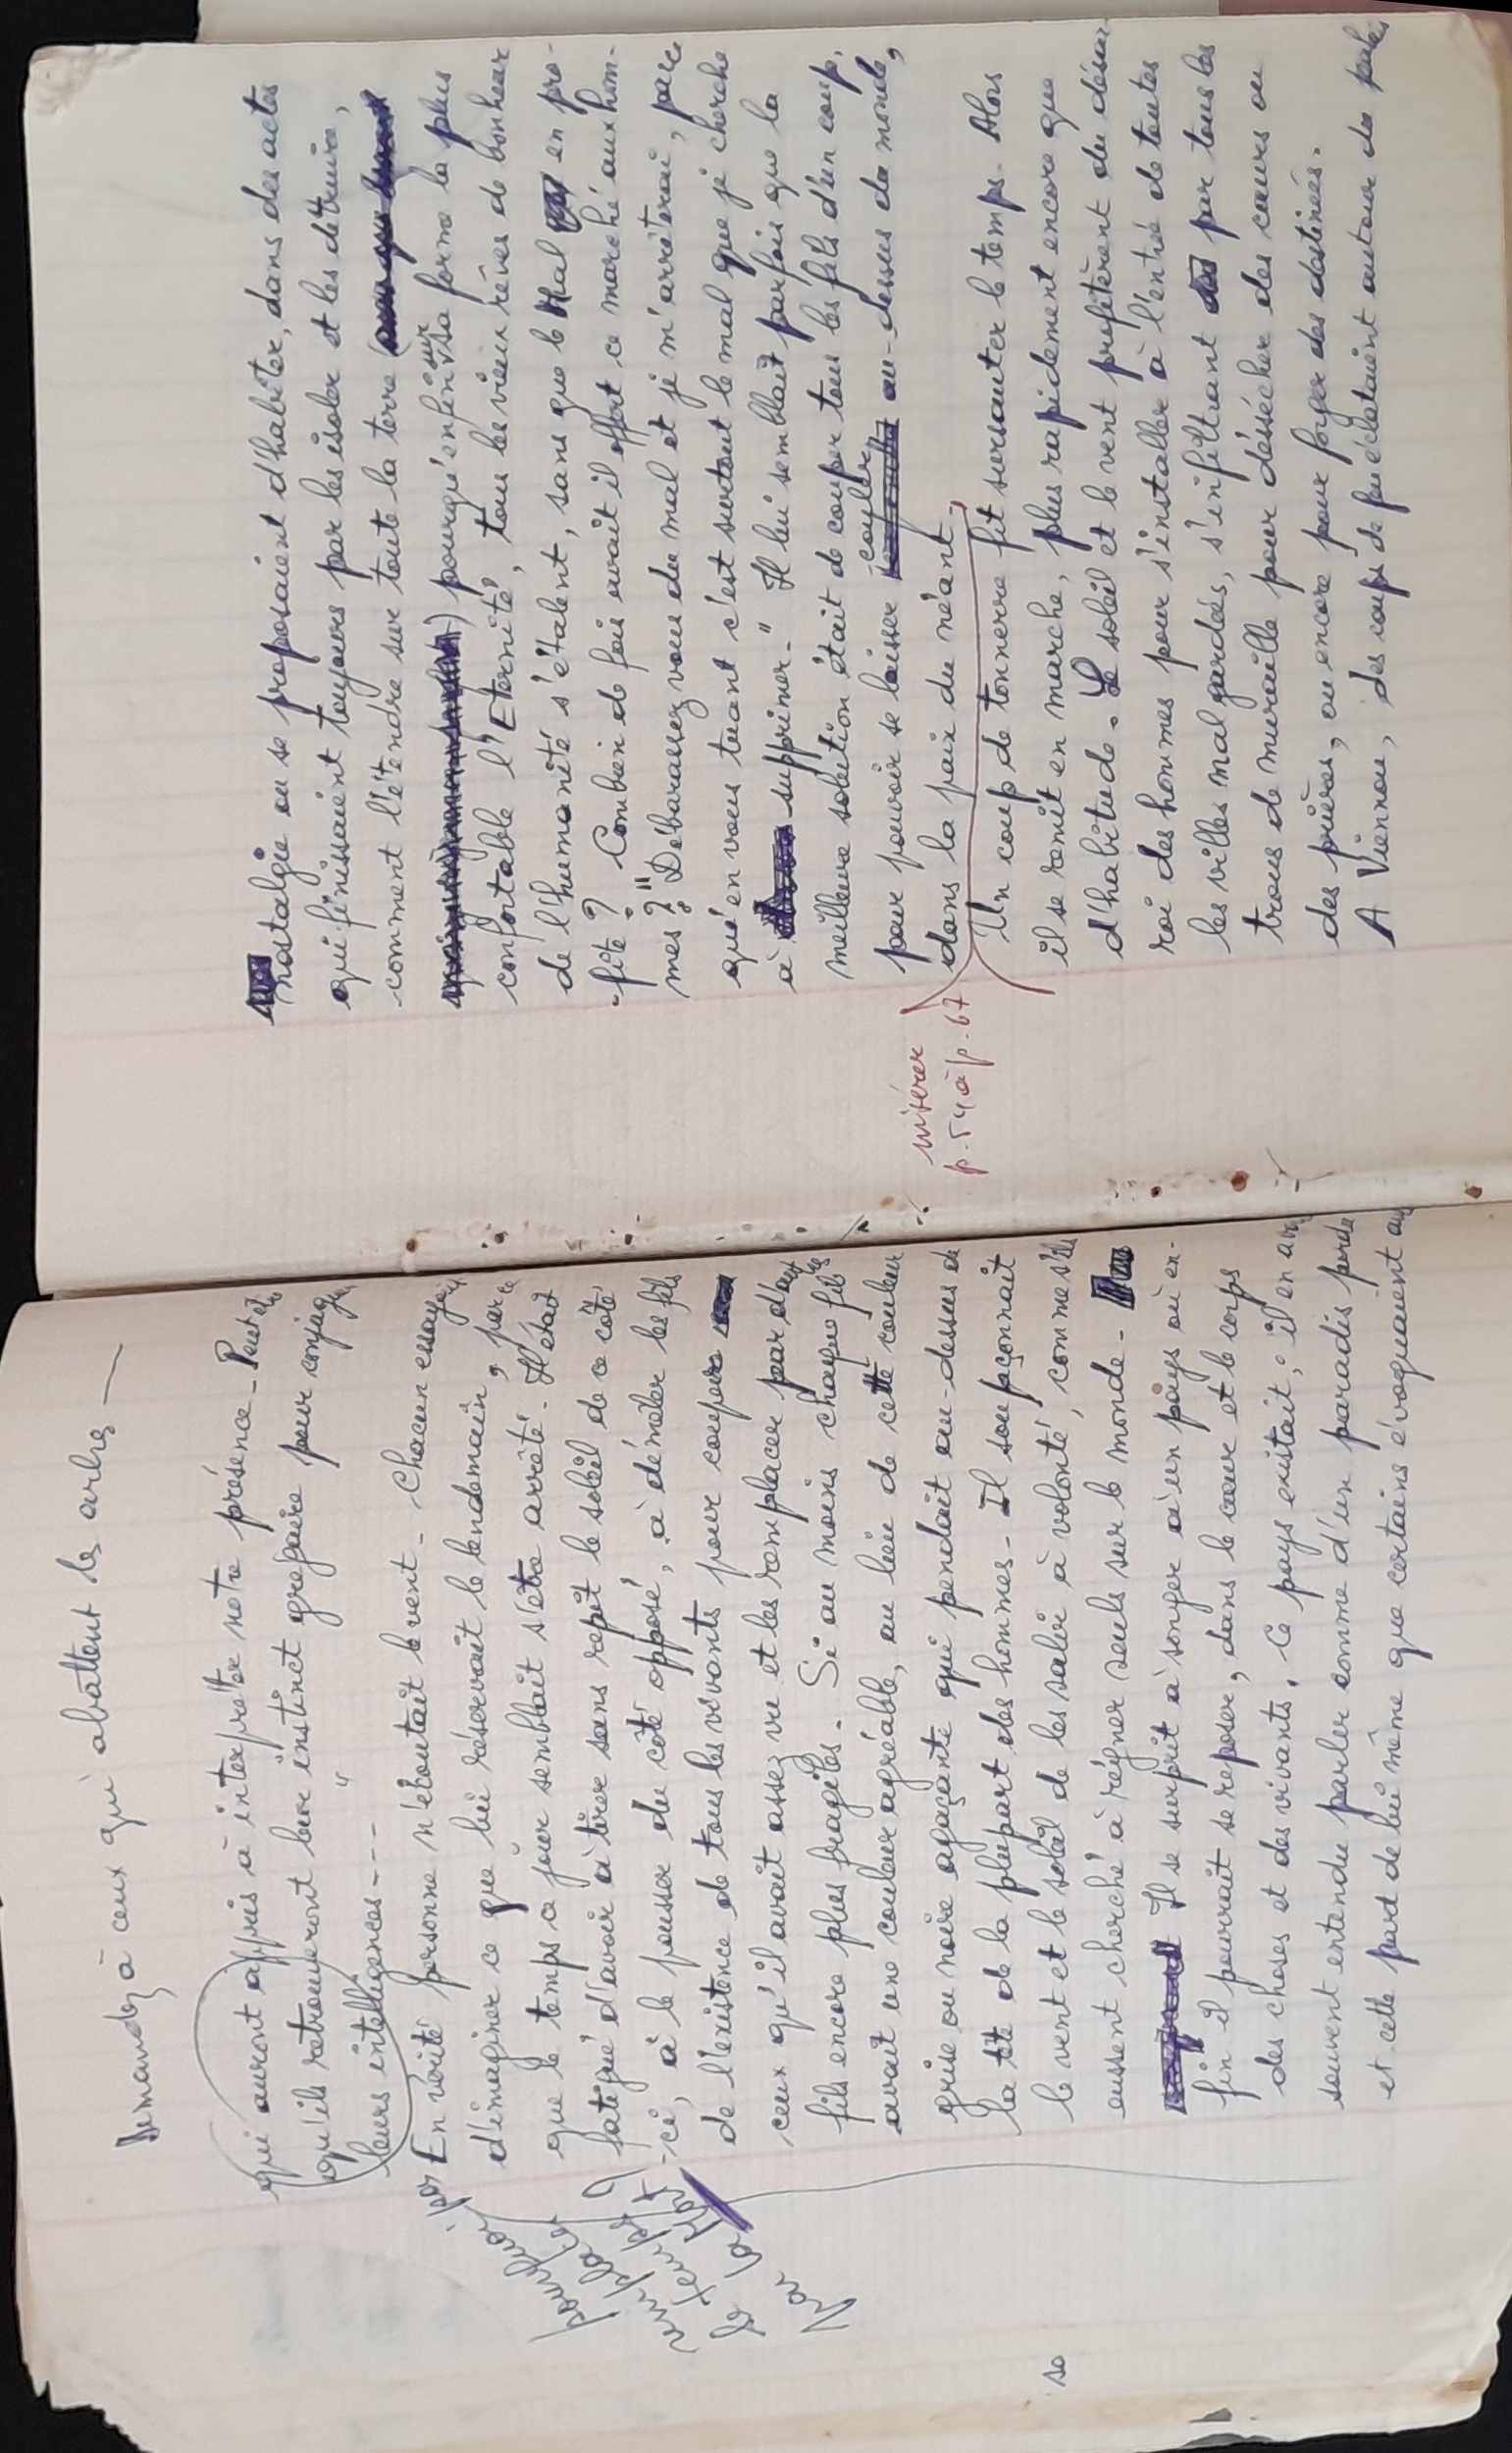 Demandez à ceux qui abattent les arbres —
qui auront appris à interpréter notre présence - Peut être
qu'ils retrouveront leur instinct grégaire pour conjuguer
leurs intelligences - - - -
En vérité personne n'écoutait le vent - Chacun essayait
d'imaginer ce que lui réservait le lendemain, parce
que le temps ce jour semblait s'être arrêté. Il était
fatigué d'avoir à tirer sans répit le soleil de ce côté
-ci, à le pousser du côté opposé, à démêler les fils
de l'existence de tous les vivants pour couper
ceux qu'il avait assez vu et les remplacer par d'autres
fils encore plus fragiles. Si au moins chaque fil
avait une couleur agréable, au lieu de cette couleur
grise ou noire agaçante qui pendait au-dessus de
la tête de la plupart des hommes - Il soupçonnait
le vent et le soleil de les salir à volonté, comme s'ils
eussent cherché à régner seuls sur le monde -
Il se surprit à songer à un pays où en-
fin il pourrait se reposer, dans le cœur et le corps
des choses et des vivants. Ce pays existait; il en avait
souvent entendu parler comme d'un paradis perdu
et cette part de lui même que certains évoquaient avec
so
nostalgie ou se proposaient d'habiter, dans des actes
qui finissaient toujours par les isoler et les détruire,
comment l'étendre sur toute la terre
) pour qu'enfin sur sa forme la plus
confortable l'Eternité, tous les vieux rêves de bonheur
de l'humanité s'étalent, sans que le Mal en pro-
-fite ? Combien de fois avait il offert ce marché aux hom-
mes ? "Débarassez vous du mal et je m'arrêterai, parce
qu'en vous tuant c'est surtout le mal que je cherche
à supprimer -" Il lui semblait parfois que la
meilleure solution était de couper tous les fils d'un coup,
pour pouvoir se laisser couler au-dessus du monde,
dans la paix du néant.
insérer
p. 54 à p. 67
Un coup de tonnerre fit sursauter le temps. Alors
il se remit en marche, plus rapidement encore que
d'habitude. Le soleil et le vent profitèrent du désar-
roi des hommes pour s'installer à l'entrée de toutes
les villes mal gardées, s'infiltrant par tous les
trous de muraille pour déssécher des cœurs ou
des prières, ou encore pour forger des destinées.
A Viennou, des coups de feu éclataient autour du palais